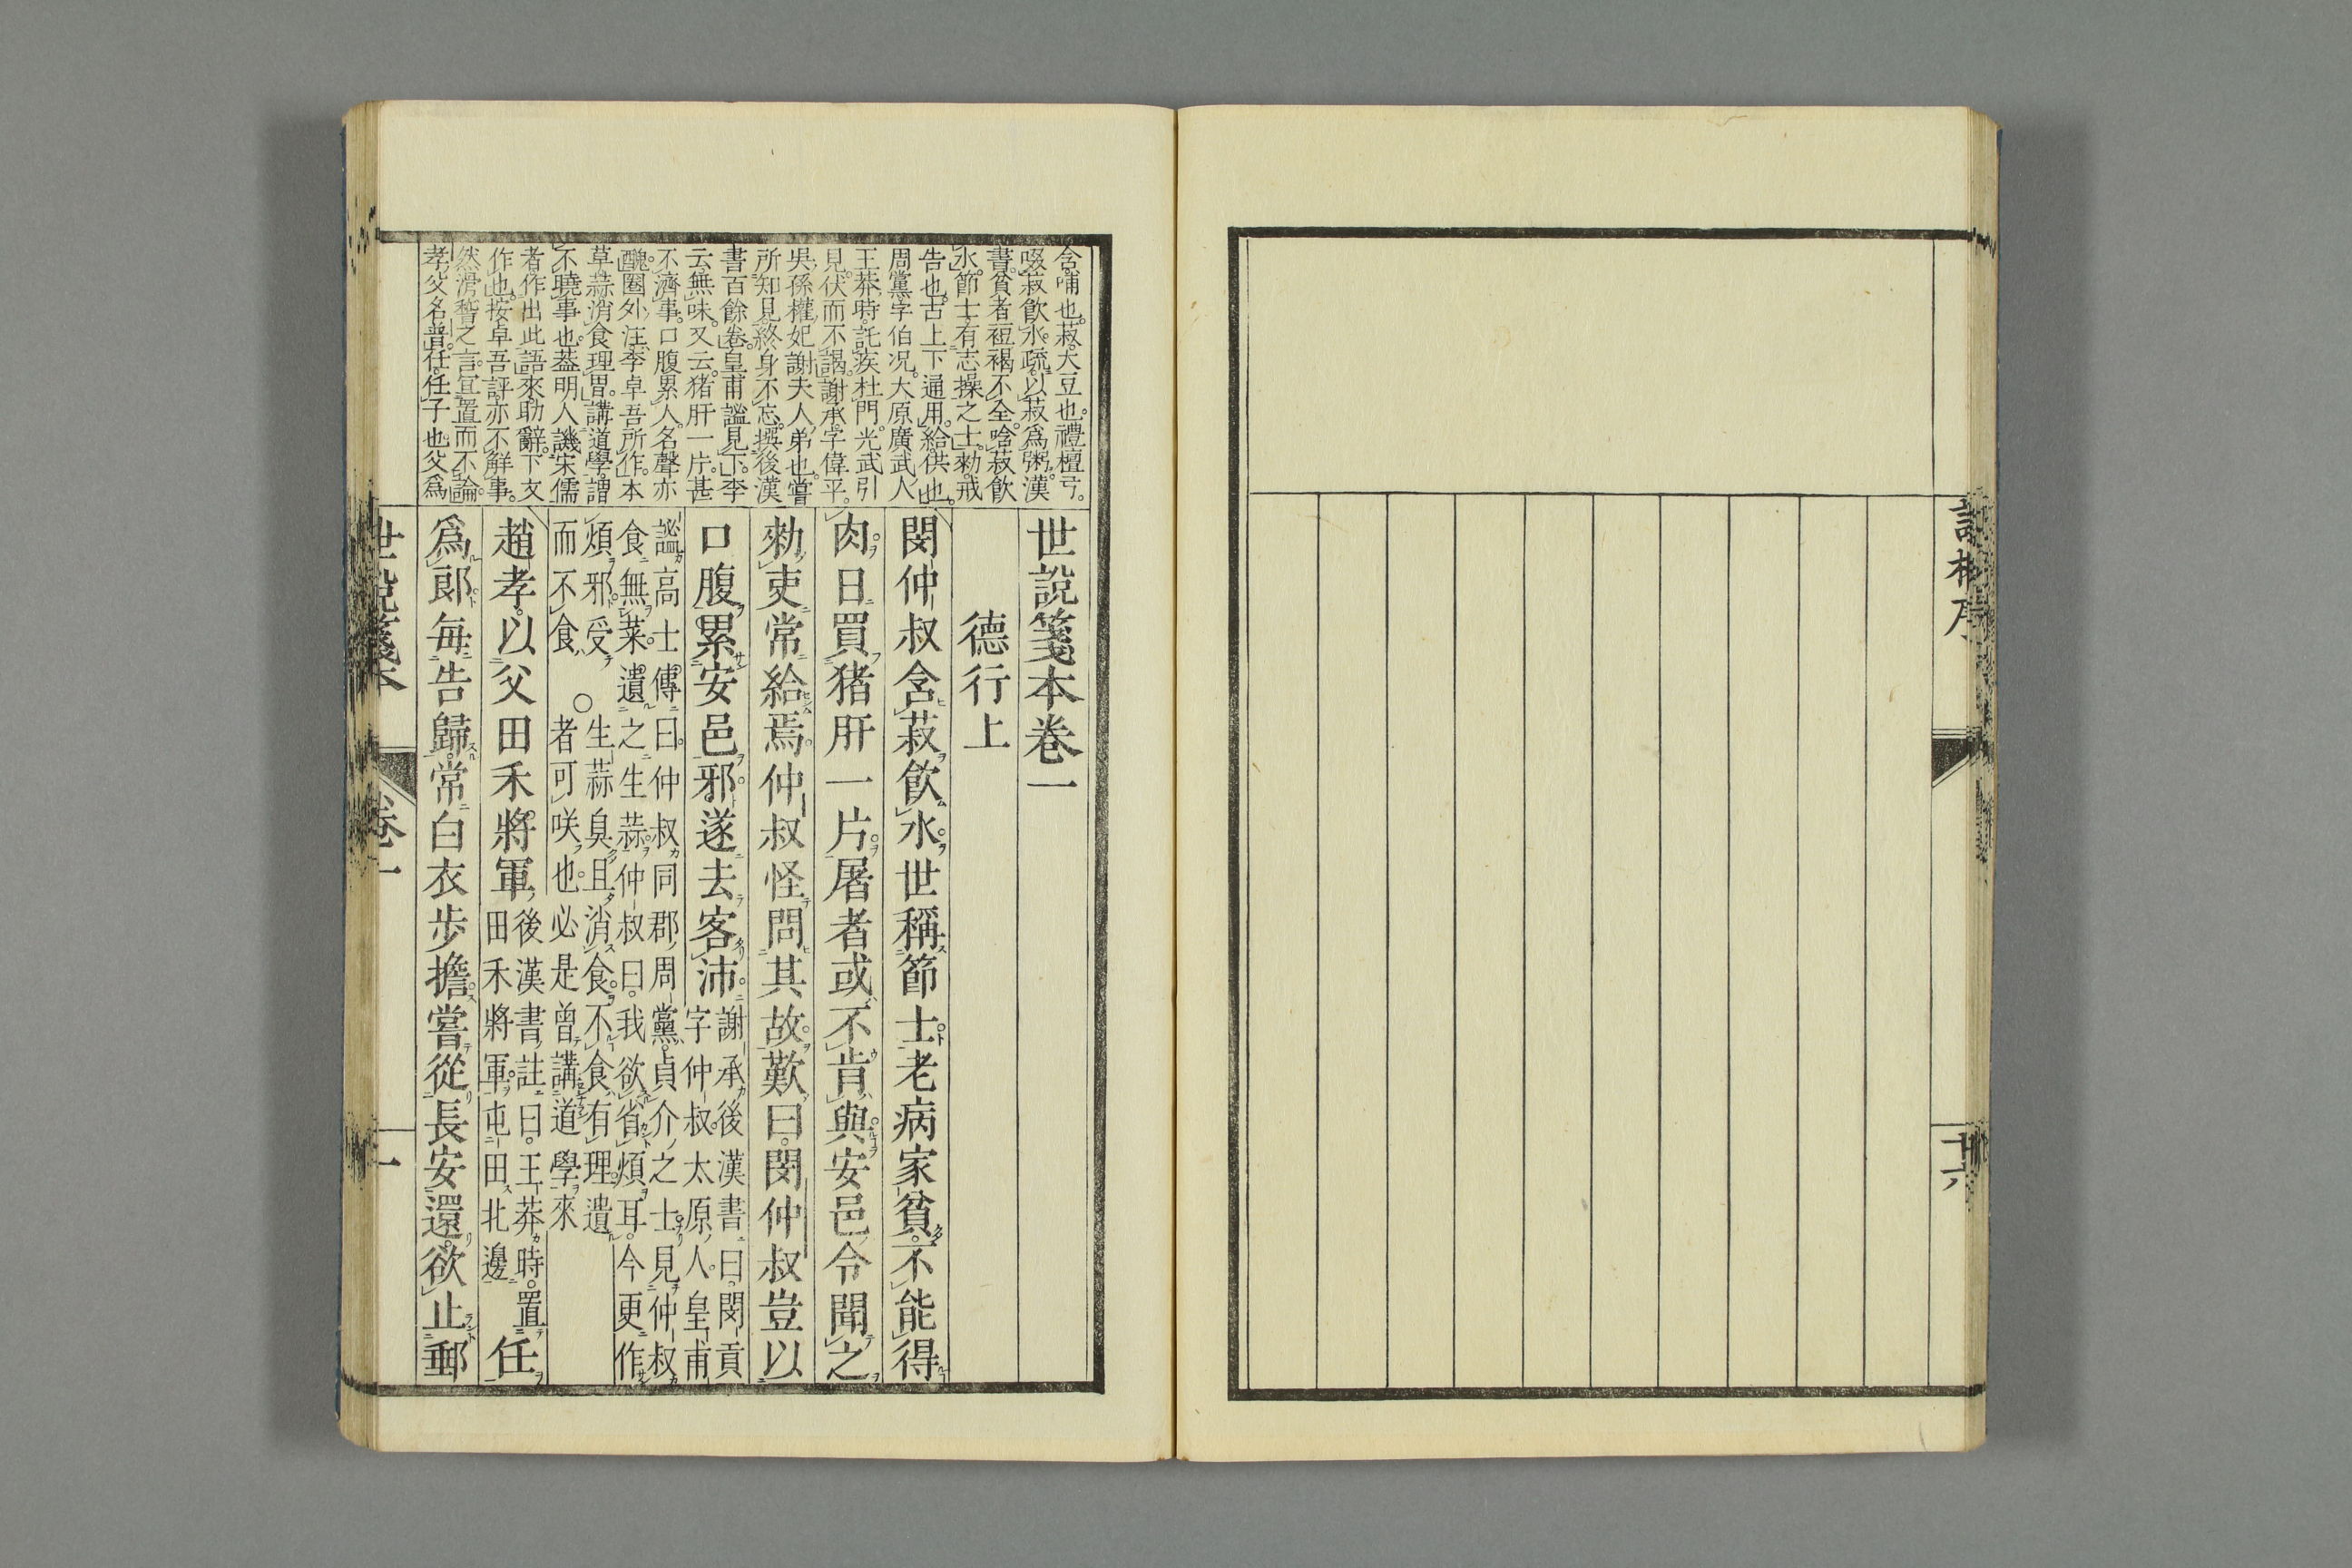 十六
含哺也。菽大豆也。禮檀弓。
啜菽飮水。疏以菽爲粥。漢
書。貧者裋褐不全。唅菽飮
水。節士有志操之士。勑戒
告也。古上下通用。給供也。
周黨字伯況。大原廣武人
王莽時。託疾杜門。光武引
見。伏而不謁。謝承字偉平。
吳孫權妃謝夫人弟也。嘗
所知見終身不忘。撰後漢
書百餘卷。皇甫謐見下。李
云無味。又云猪肝一片。甚
不濟事。口腹累人。名聲亦
醜。圈外注。李卓吾所作。本
草蒜消食理胃。講道學謂
不曉事也。蓋明人譏宋儒
者作出此語。來助辭。下文
作也。按卓吾評亦不解事。
然滑稽之言。宜置而不論。
孝父名普。任任子也。父爲
世說箋本卷一
德行上
閔仲叔含菽飮水。世稱節士。老病家貧。不能得
肉。日買猪肝一片。屠者或不肯與。安邑令聞之
勑吏常給焉。仲叔怪問其故。歎曰。閔仲叔豈以
口腹累安邑邪。遂去客沛。
謝承後漢書曰。閔貢
字仲叔。太原人。皇甫
謐高士傳曰。仲叔同郡周黨。貞介之士。見仲叔
食無菜。遺之生蒜。仲叔曰。我欲省煩耳。今更作
煩邪。受而不食。
○生蒜臭。且消食。不食有理。遺
者可咲也。必是曾講道學來
趙孝。以父田禾將軍。
後漢書註曰。王莽時。置
田禾將軍。屯田北邊
任
爲郎。每告歸。常白衣步擔。嘗從長安還。欲止郵
世說箋本
卷一
一